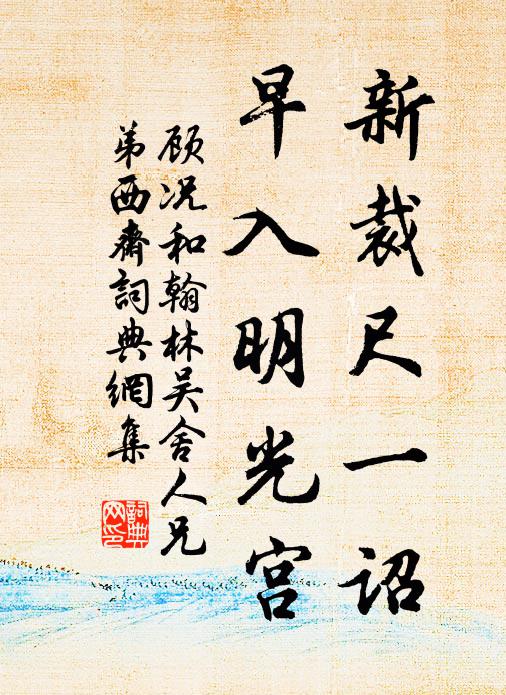 新裁尺一诏
早入明光宫
顾况和翰林吴舍人兄
弟西斋詞典網集
詞典
网印